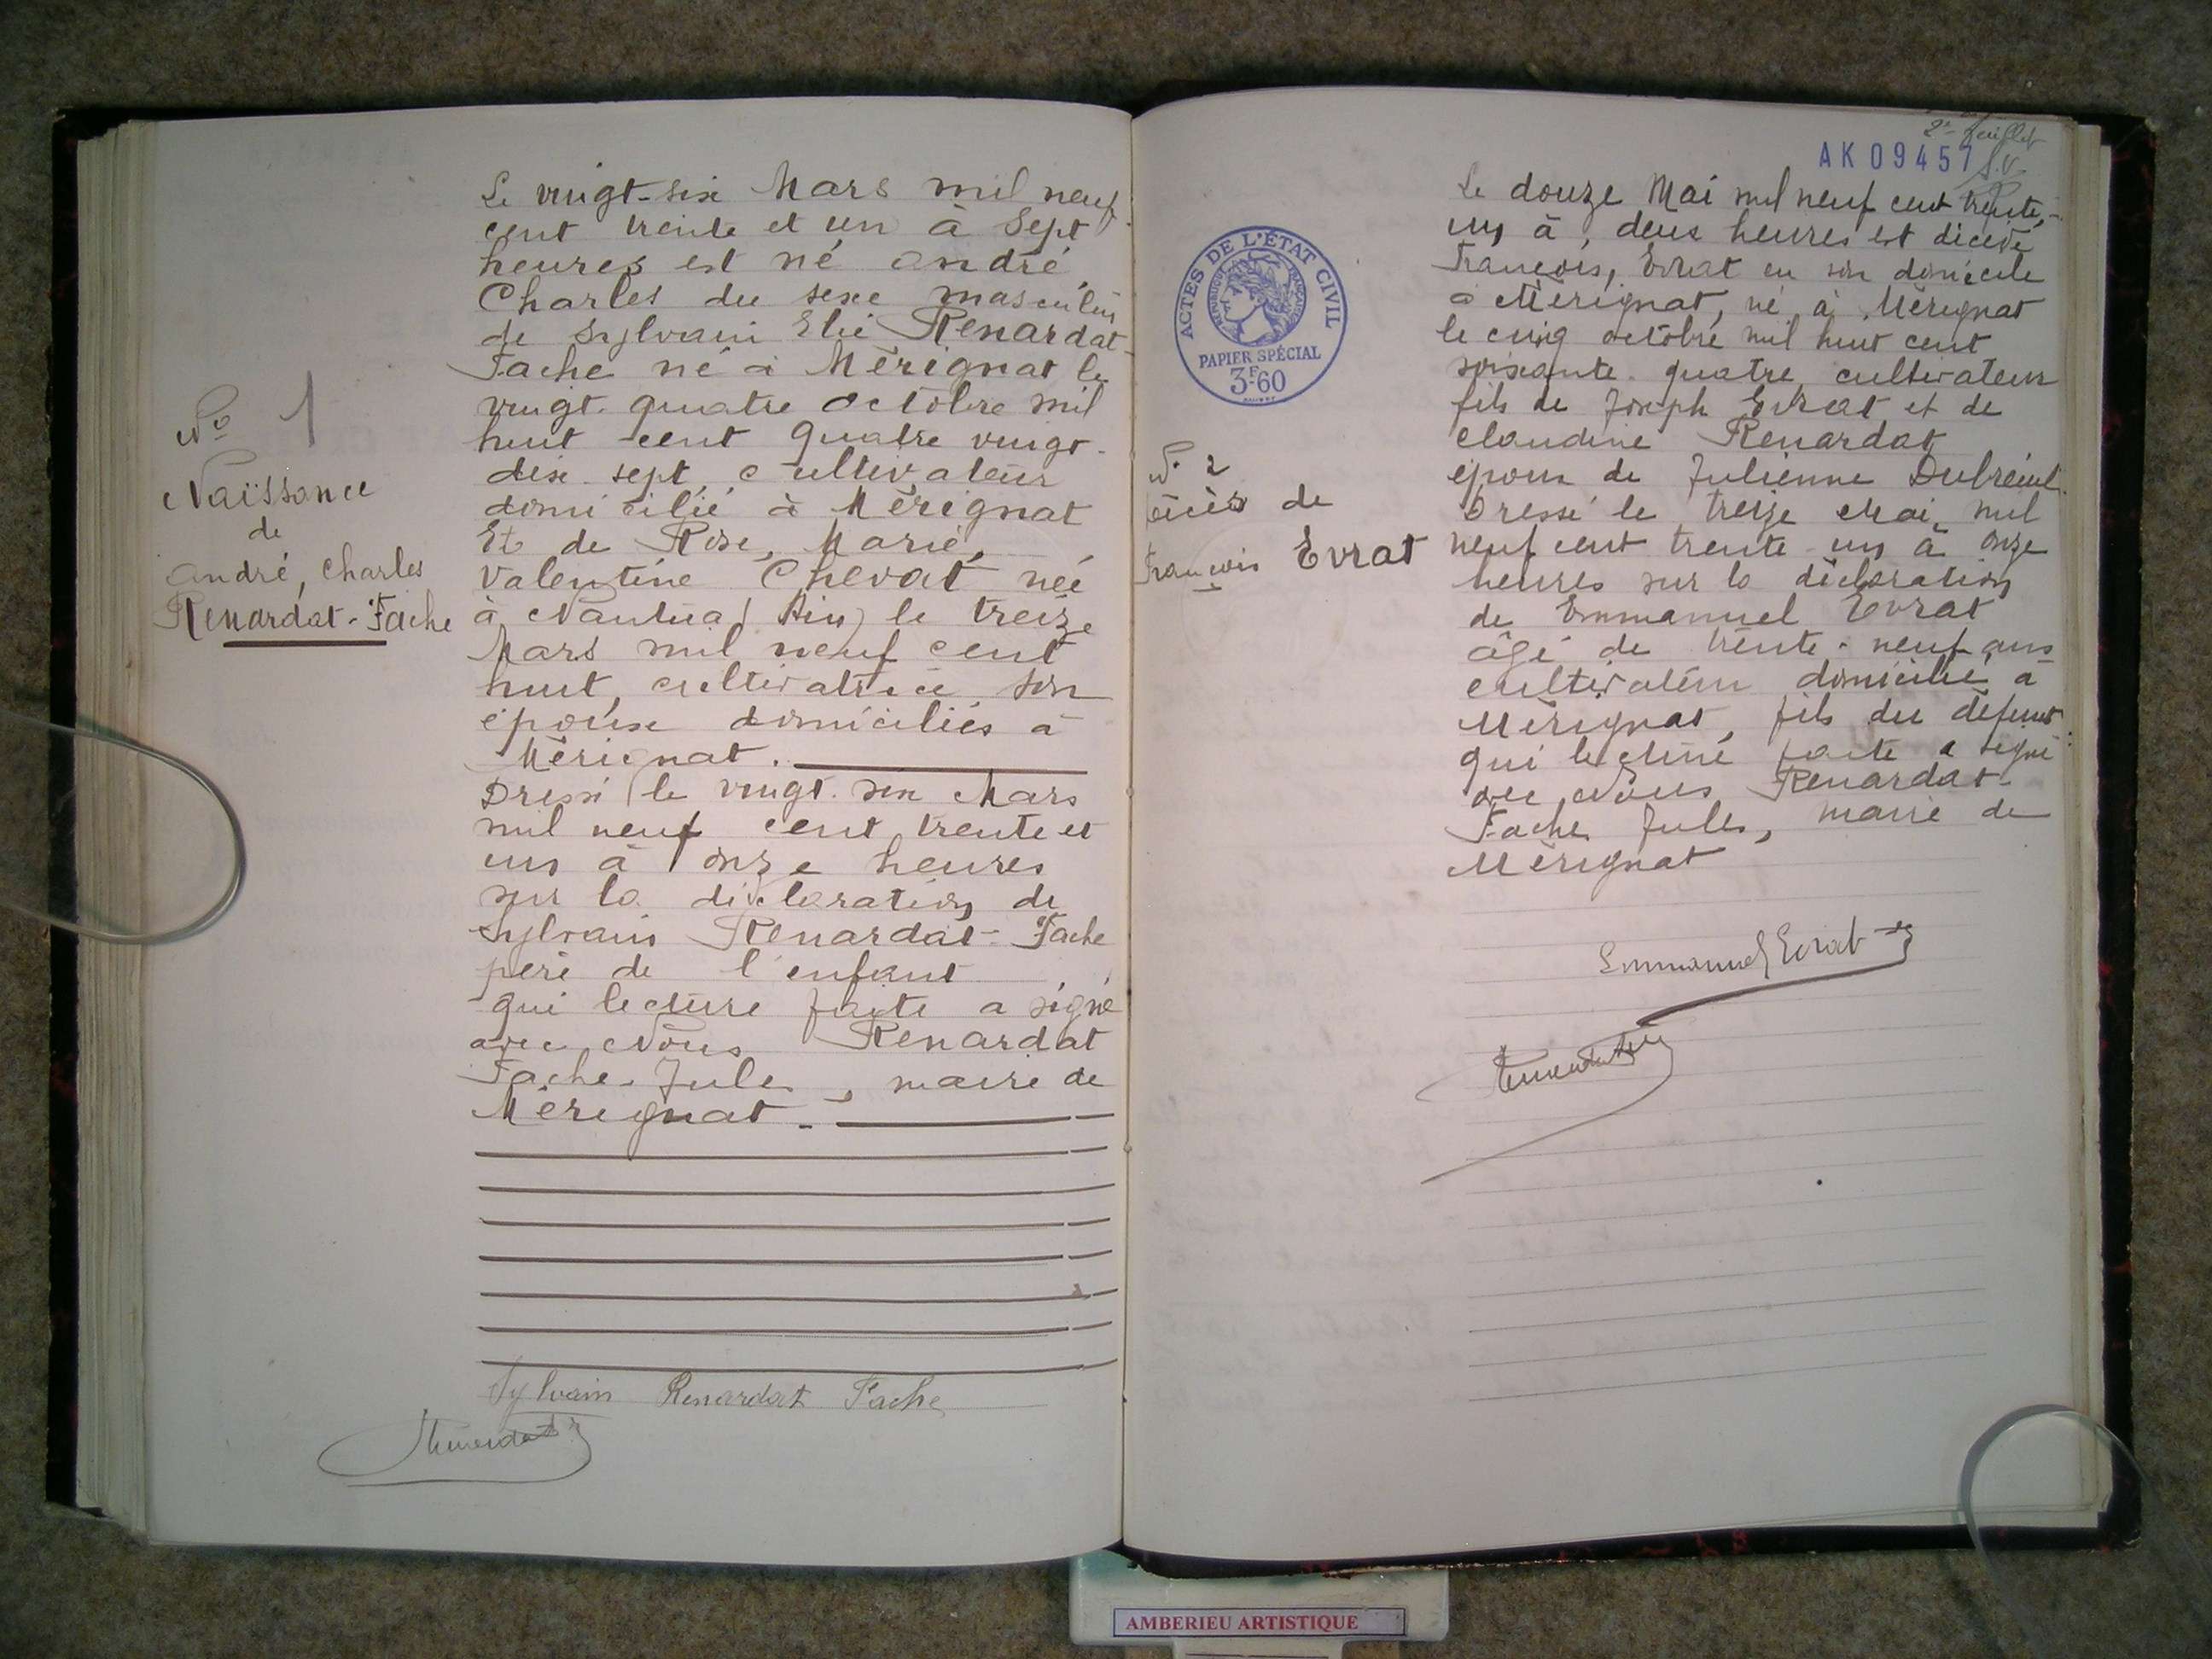 Nº 1
Naissance
de
André, Charles
Renardat-Fache
Le vingt-six Mars mil neuf
cent trente et un à Sept
heures est né André
Charles du sexe masculin
de Sylvain Elie Renardat-
Fache né à Mérignat le
vingt-quatre octobre mil
huit cent quatre vingt-
dix-sept, cultivateur
domicilié à Mérignat
Et de Rose, Marie,
Valentine Chevat née
à Nantua (Ain) le treize
Mars mil neuf cent
huit, cultivatrice son
épouse domiciliés à
Mérignat.
Dressé le vingt-six Mars
mil neuf cent trente et
un à onze heures
sur la déclaration de
Sylvain Renardat-Fache
père de l'enfant
qui lecture faite a signé
avec Nous Renardat
Fache Jules, maire de
Mérignat.
Sylvain Renardat Fache
Renardat
2e feuillet
AK 09457
ACTES DE L'ÉTAT CIVIL
RÉPUBLIQUE FRANÇAISE
PAPIER SPÉCIAL
3F60
Nº 2
Décès de
François Evrat
Le douze Mai mil neuf cent trente-
un à, deux heures est décédé
François, Evrat en son domicile
à Mérignat, né à Mérignat
le cinq octobre mil huit cent
soixante-quatre, cultivateur
fils de Joseph Evrat et de
Claudine Renardat
époux de Julienne Dubreuil.
Dressé le treize Mai, mil
neuf cent trente-un à onze
heures sur la déclaration
de Emmanuel Evrat
âgé de trente-neuf ans
cultivateur domicilié à
Mérignat, fils du défunt
qui lecture faite a signé
avec Nous Renardat-
Fache Jules, maire de
Mérignat
Emmanuel Evrat
Renardat
AMBERIEU ARTISTIQUE